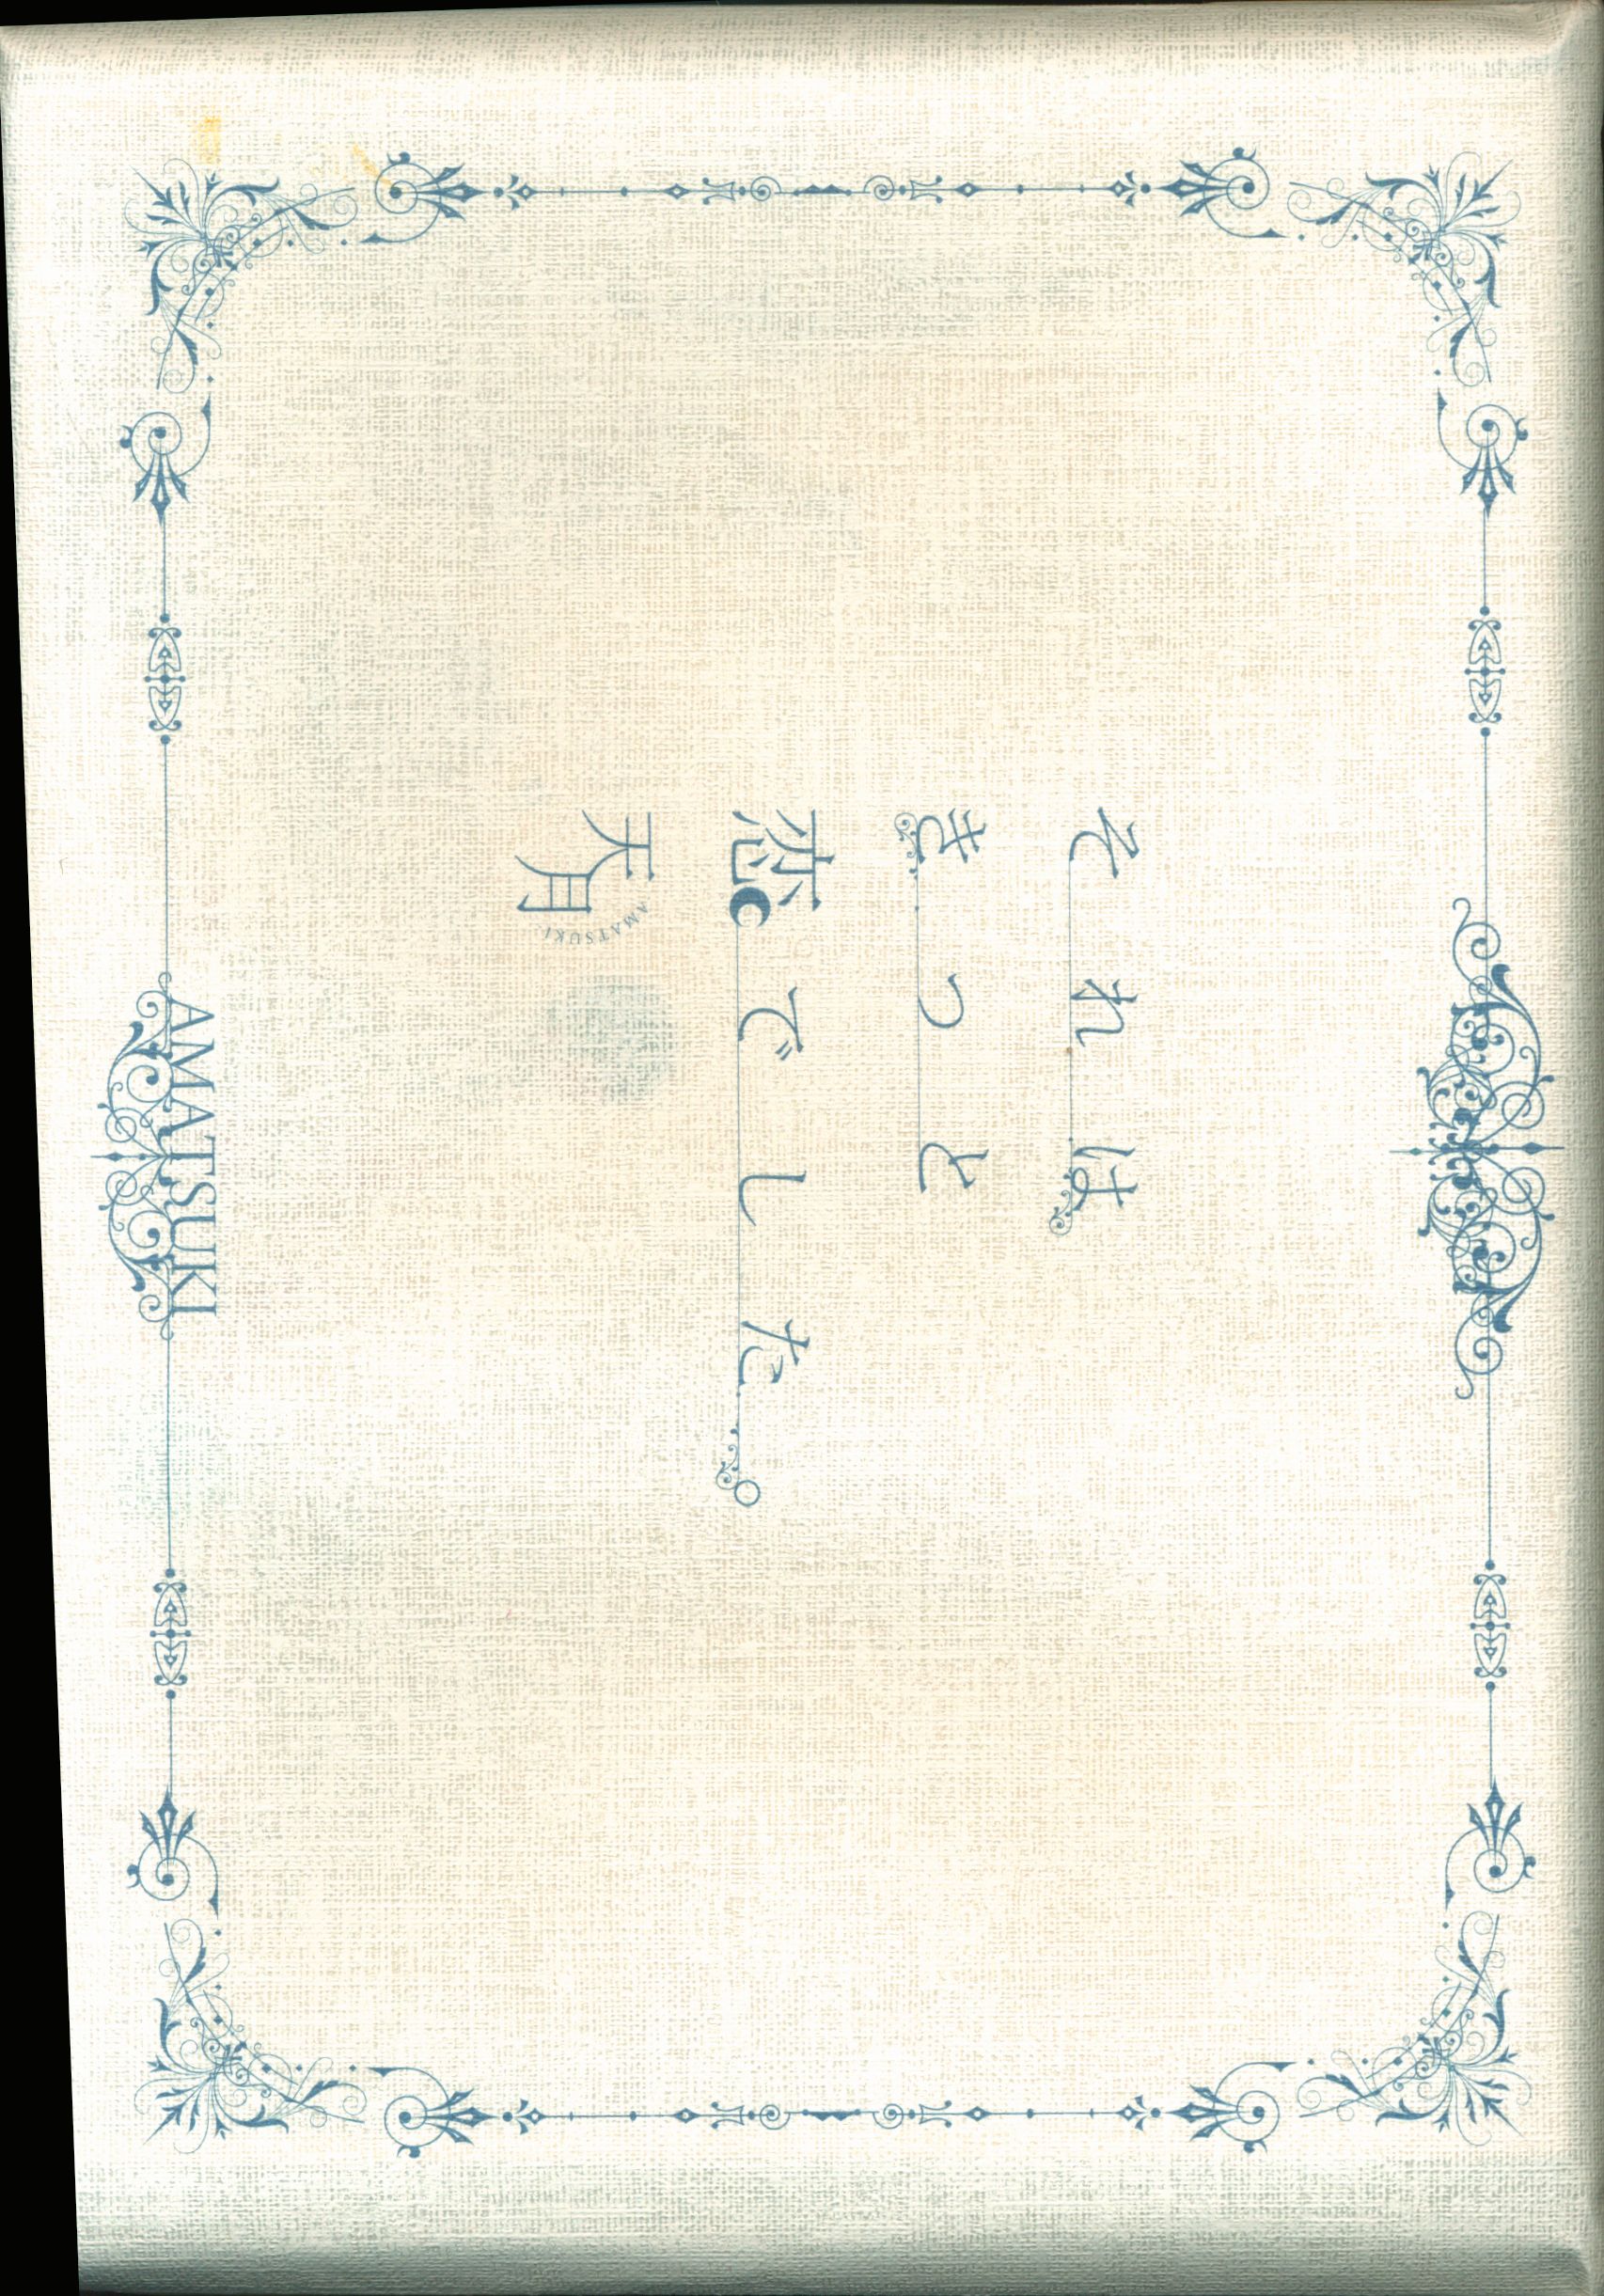 それは
きっと
恋でした
天月
AMATSUKI
AMATSUKI